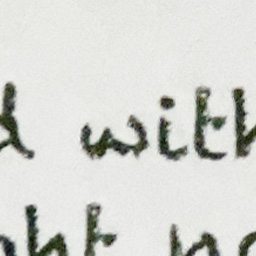 d with
ht no